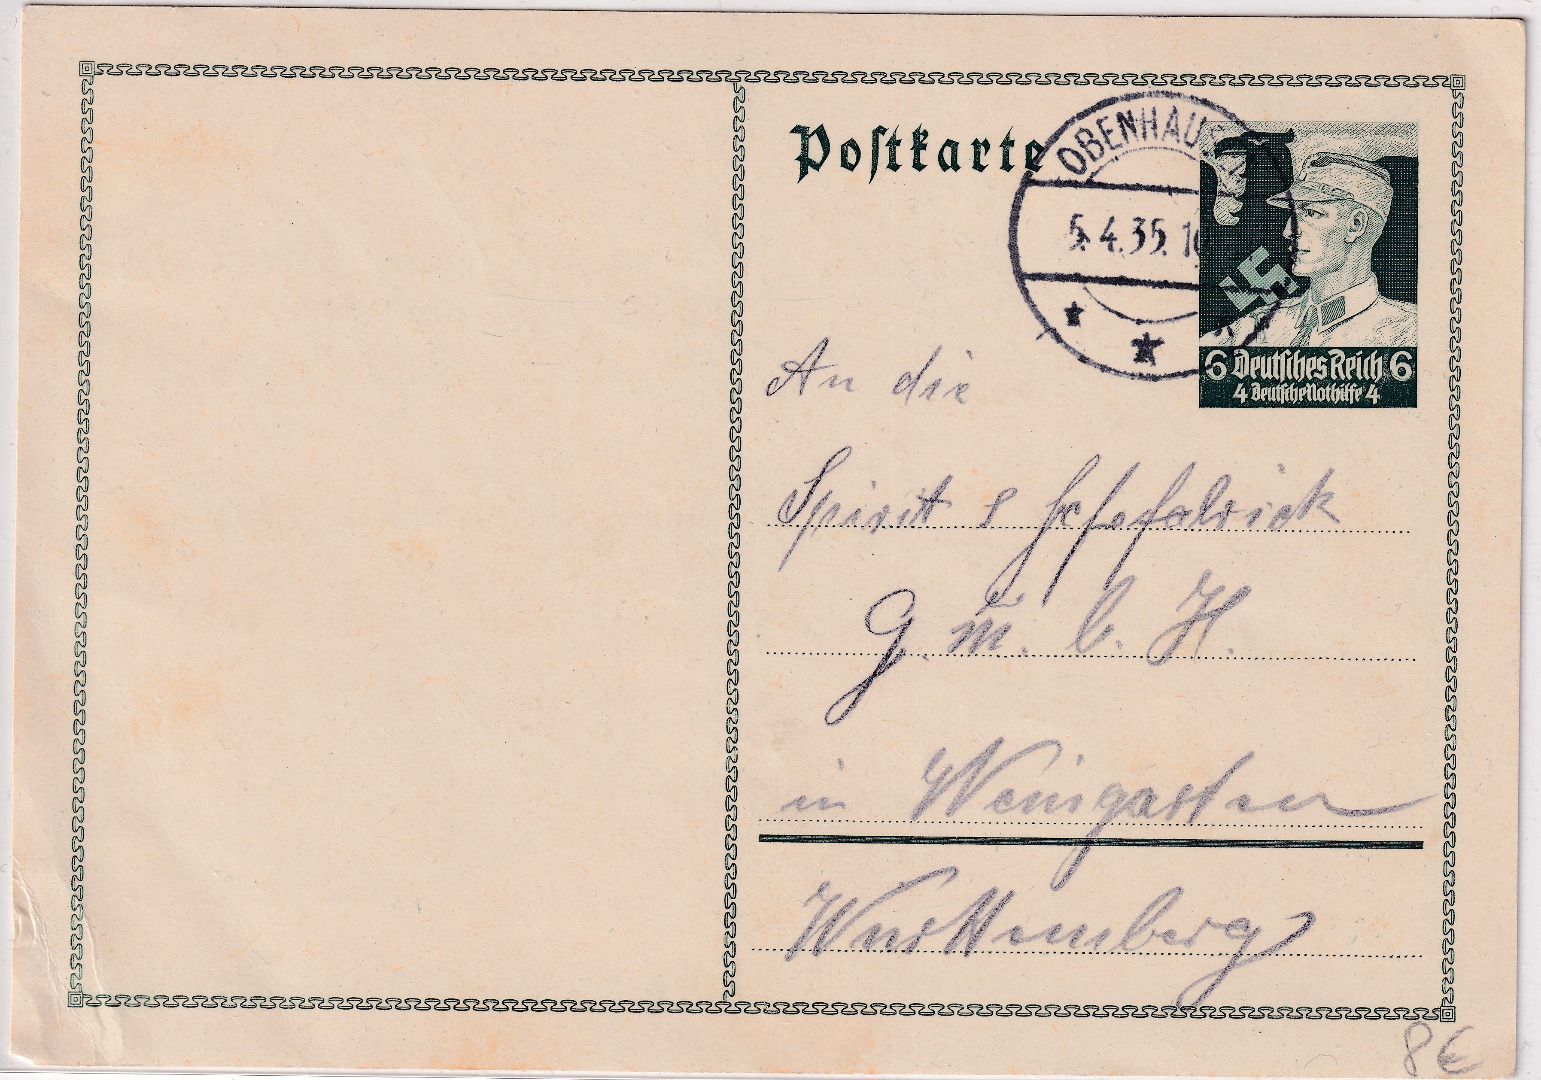 Postkarte
OBENHAUSEN
5.4.35. 1
6 Deutsches Reich 6
4 Deutsche Nothilfe 4
An die
Spirit & Hefefabrick
G. m. b. H.
in Weingarten
Württemberg
8€